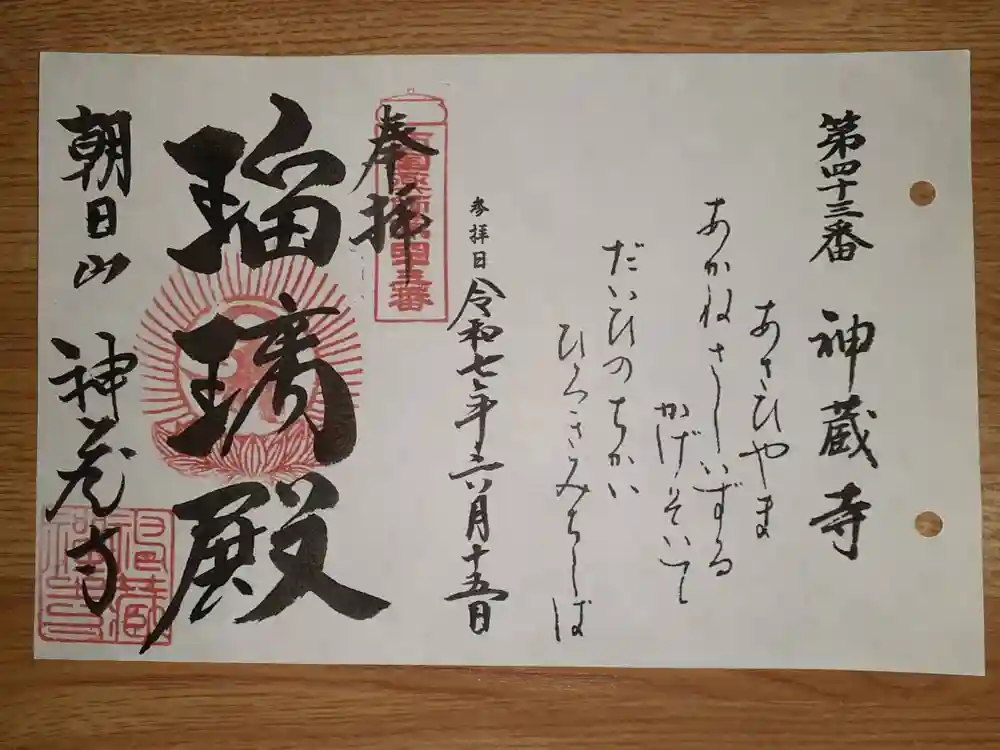 第四十三番 神蔵寺
あさひやま
あかねさしいずる
かげそいて
だいひのちかい
ひろさみちしば
参拝日 令和七年六月十五日
奉拝
西国薬師第四十三番
瑠璃殿
朝日山 神蔵寺